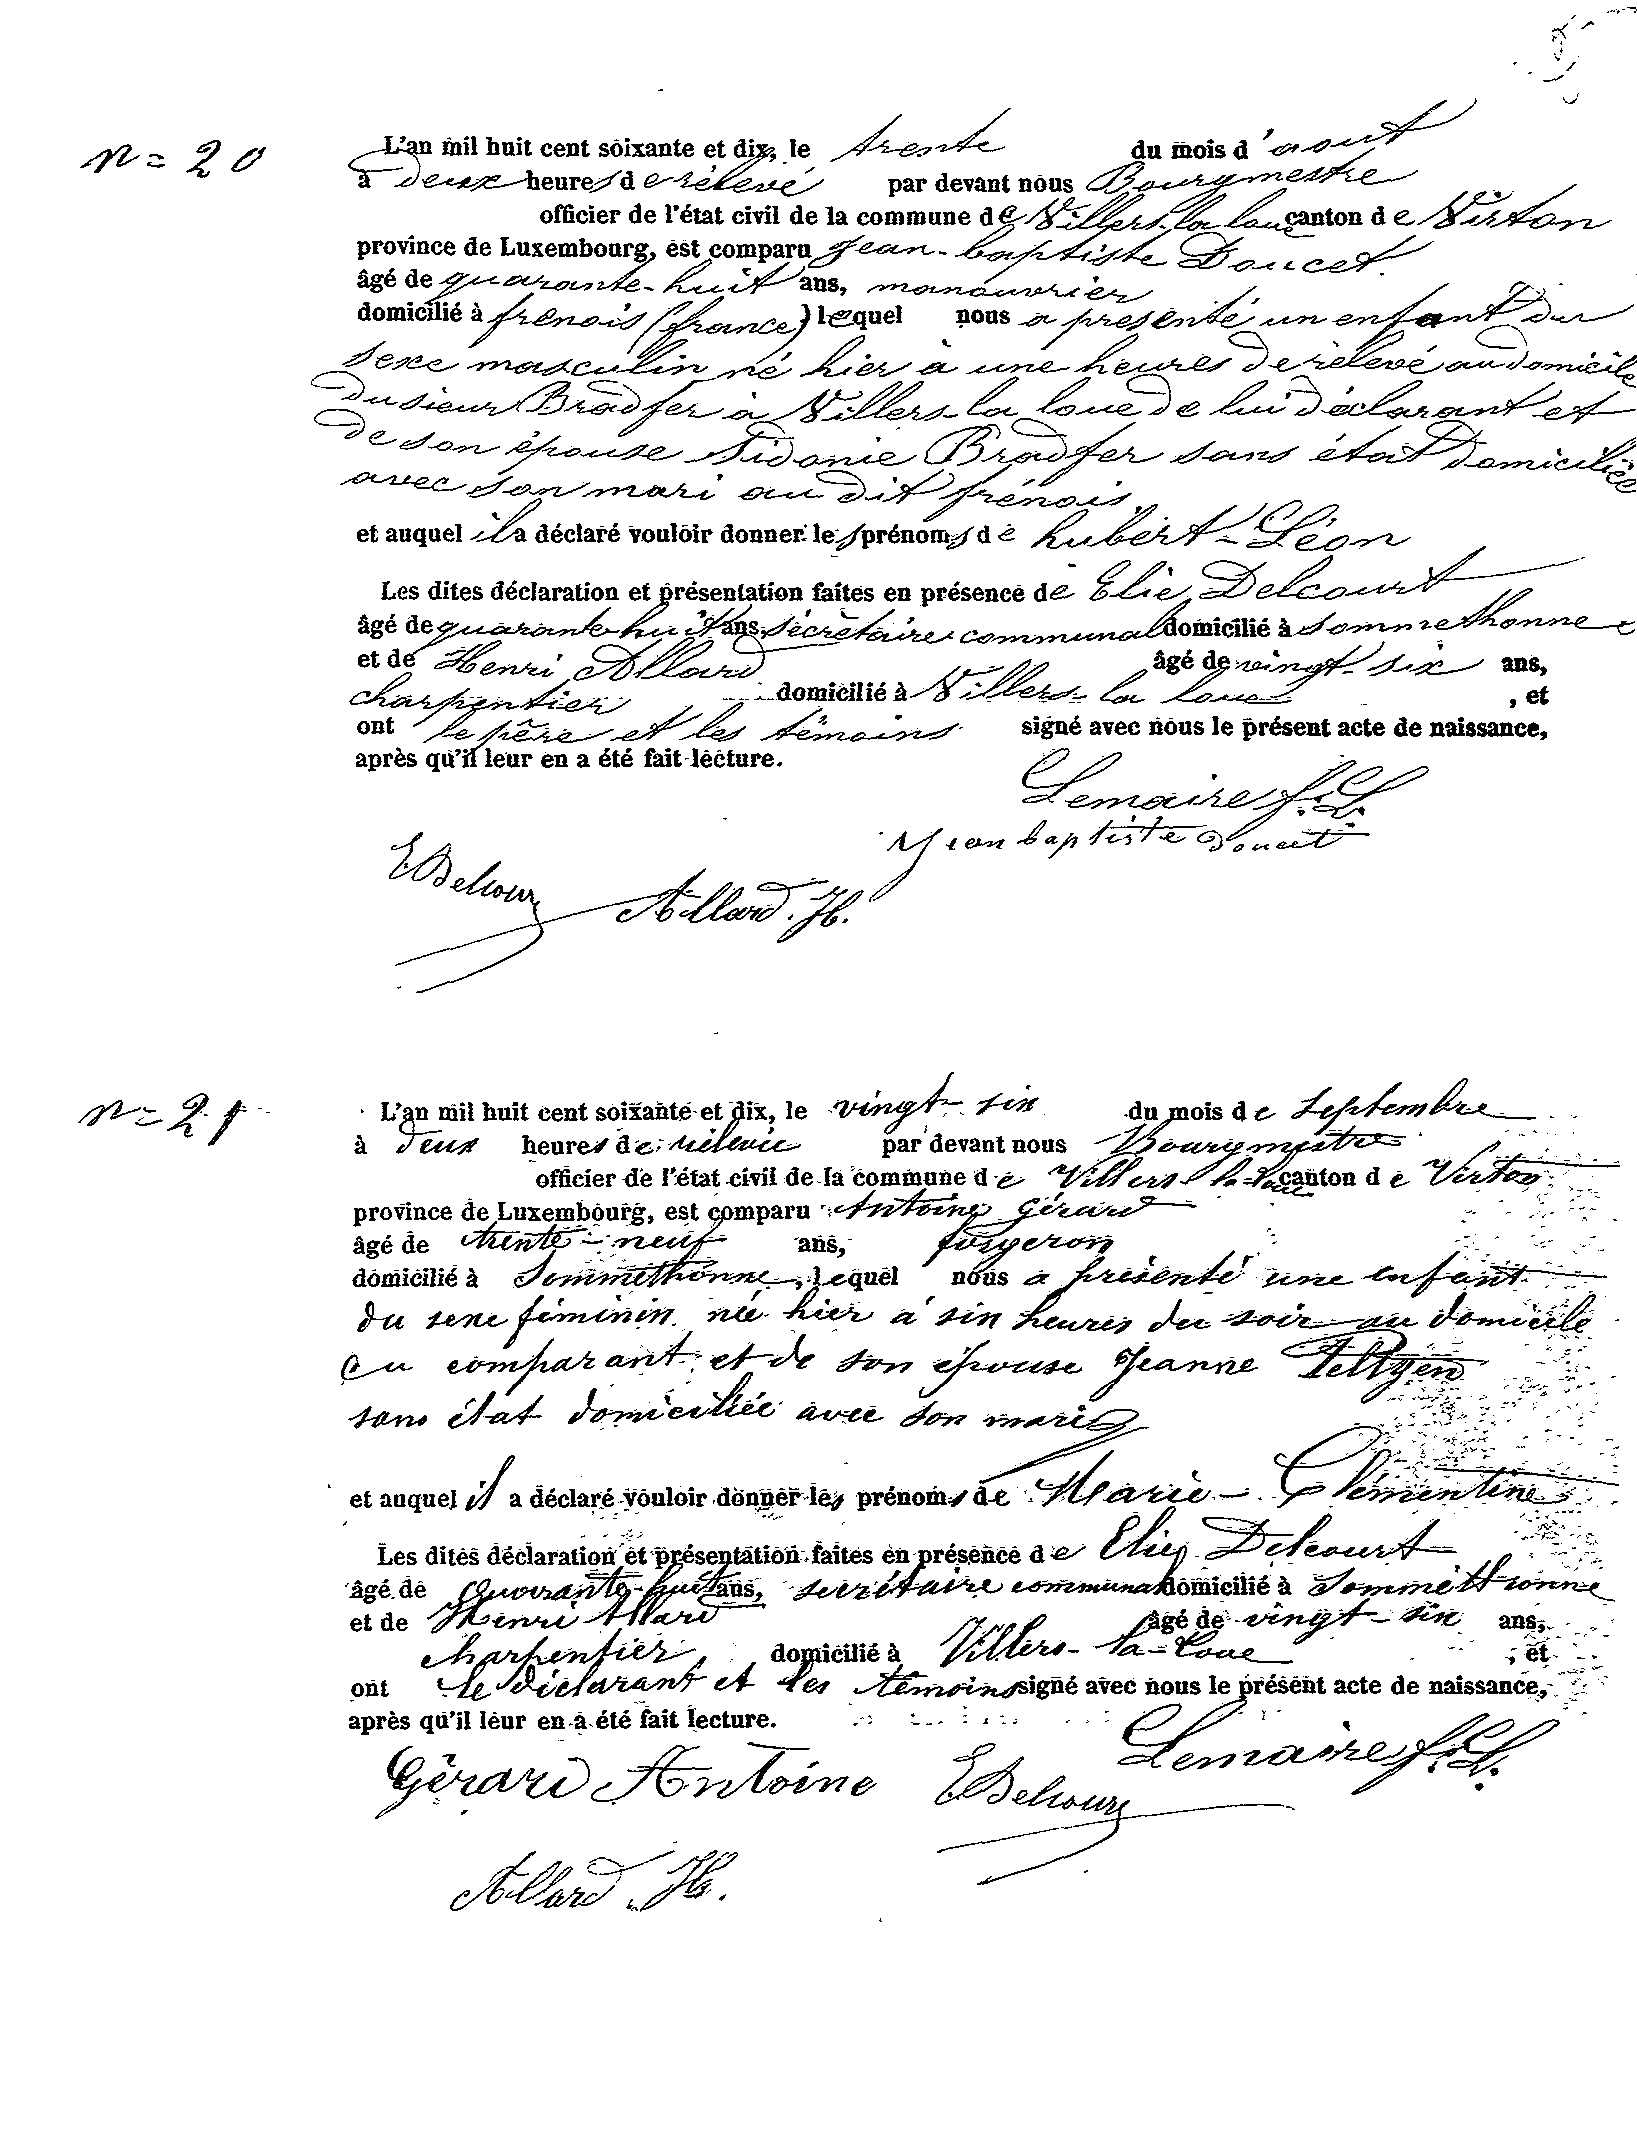 n = 20
L'an mil huit cent soixante et dix, le trente du mois d'aout
à deux heures de rèlevé par devant nous Bourgmestre
officier de l'état civil de la commune de Villers-la loue canton de Virton
province de Luxembourg, est comparu Jean-baptiste Doucet
âgé de quarante-huit ans, manouvrier
domicilié à frenois (france) lequel nous a présenté un enfant du
sexe masculin né hier à une heures de rèlevé au domicile
du sieur Bradfer à Villers-la loue de lui déclarant et
de son épouse Sidonie Bradfer sans état domiciliée
avec son mari au dit frénois
et auquel il a déclaré vouloir donner les prénoms de hubert-Léon
Les dites déclaration et présentation faites en présence de Elie Delcourt
âgé de quarante-huit ans, sécrètaire communal domicilié à Sommethonne
et de Henri Allard âgé de vingt-six ans,
charpentier domicilié à Villers-la loue , et
ont le père et les témoins signé avec nous le présent acte de naissance,
après qu'il leur en a été fait lecture.
Lemaire f. L.
Jean baptiste Doucet
E Delcour
Allard. H.
n = 21
L'an mil huit cent soixante et dix, le vingt-six du mois de Septembre
à deux heures de rélevée par devant nous Bourgmestre
officier de l'état civil de la commune de Villers-la-loue canton de Virton
province de Luxembourg, est comparu Antoine Gérard
âgé de trente-neuf ans, forgeron
domicilié à Sommethonne, lequel nous a présenté une enfant
du sexe féminin née hier à six heures du soir au domicile
du comparant et de son épouse Jeanne
sans état domiciliée avec son mari
et auquel il a déclaré vouloir donner les prénoms de Marie-Clémentine
Les dites déclaration et présentation faites en présence de Elie Delcourt
âgé de Quarante-huit ans, secrétaire communal domicilié à Sommethonne
et de Henri Allard âgé de vingt-six ans,
charpentier, domicilié à Villers-la-loue , et
ont le déclarant et les témoins signé avec nous le présent acte de naissance,
après qu'il leur en a été fait lecture.
Lemaire f. L.
Gérard Antoine
E Delcour
Allard. H.